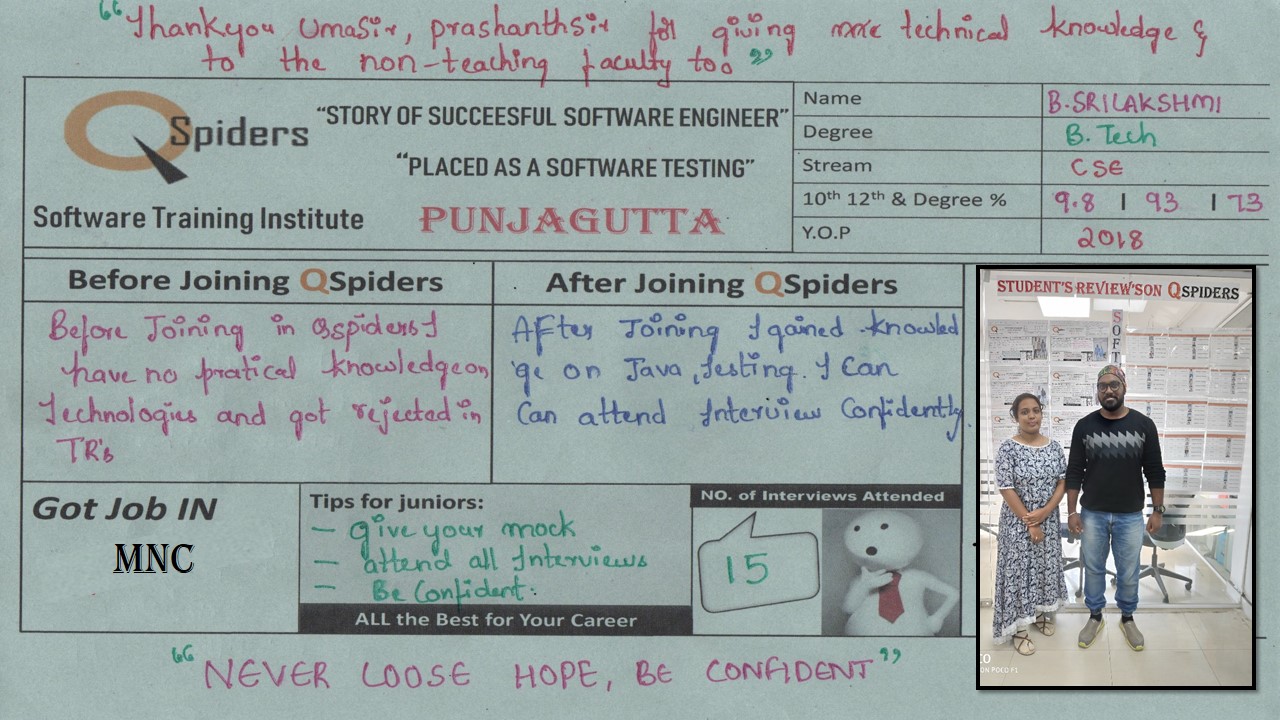 “Thankyou Umasir, prashanthsir for giving me technical knowledge &
to the non-teaching faculty too”
QSpiders
Software Training Institute
“STORY OF SUCCEESFUL SOFTWARE ENGINEER”
“PLACED AS A SOFTWARE TESTING”
PUNJAGUTTA
Name B.SRILAKSHMI
Degree B. Tech
Stream CSE
10th 12th & Degree % 9.8 | 93 | 73
Y.O.P 2018
Before Joining QSpiders
Before Joining in Qspiders I
have no pratical knowledge on
Technologies and got rejected in
TR's
After Joining QSpiders
After Joining I gained knowled
ge on Java, Testing. I Can
Can attend Interview Confidently.
STUDENT'S REVIEW'SON QSPIDERS
SOFT
Got Job IN
MNC
Tips for juniors:
- give your mock
- attend all Interviews
- Be Confident.
ALL the Best for Your Career
NO. of Interviews Attended
15
CO
ON POCO F1
“NEVER LOOSE HOPE, BE CONFIDENT”